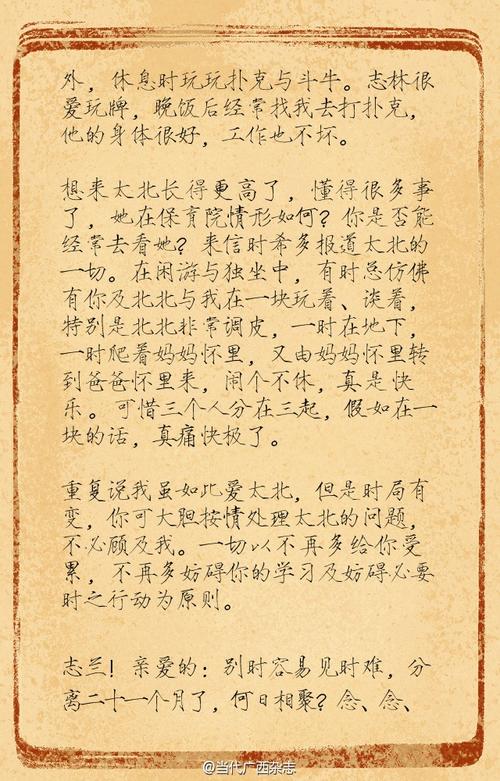 外，休息时玩玩扑克与斗牛。志林很
爱玩牌，晚饭后经常找我去打扑克，
他的身体很好，工作也不坏。
想来太北长得更高了，懂得很多事
了，她在保育院情形如何？你是否能
经常去看她？来信时希多报道太北的
一切。在闲游与独坐中，有时总仿佛
有你及北北与我在一块玩着、谈着，
特别是北北非常调皮，一时在地下，
一时爬着妈妈怀里，又由妈妈怀里转
到爸爸怀里来，闹个不休，真是快
乐。可惜三个人分在三起，假如在一
块的话，真痛快极了。
重复说我虽如此爱太北，但是时局有
变，你可大胆按情处理太北的问题，
不必顾及我。一切以不再多给你受
累，不再多妨碍你的学习及妨碍必要
时之行动为原则。
志兰！亲爱的：别时容易见时难，分
离二十一个月了，何日相聚？念、念、
@当代广西杂志